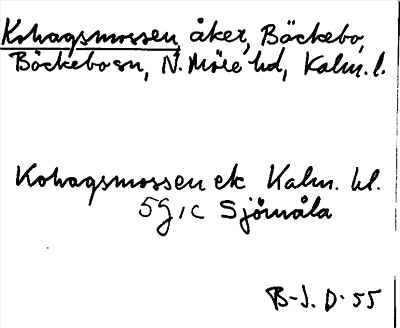 Kohagsmossen, åker, Bäckebo,
Bäckebo sn, N. Möre hd, Kalm. l.
Kohagsmossen ek Kalm. bl.
5 g, c Sjömåla
B-J. D-55